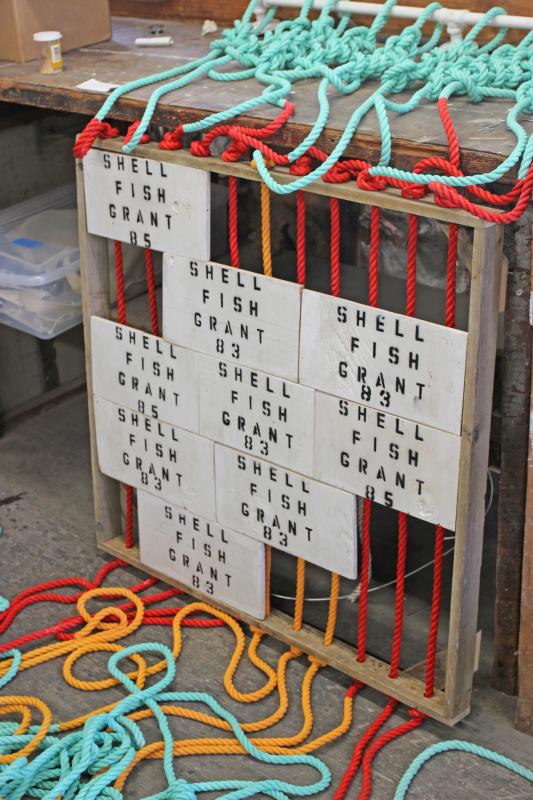 SHELL
FISH
GRANT
85
SHELL
FISH
GRANT
83
SHELL
FISH
GRANT
83
SHELL
FISH
GRANT
85
SHELL
FISH
GRANT
83
SHELL
FISH
GRANT
85
SHELL
FISH
GRANT
83
SHELL
FISH
GRANT
83
SHELL
FISH
GRANT
83